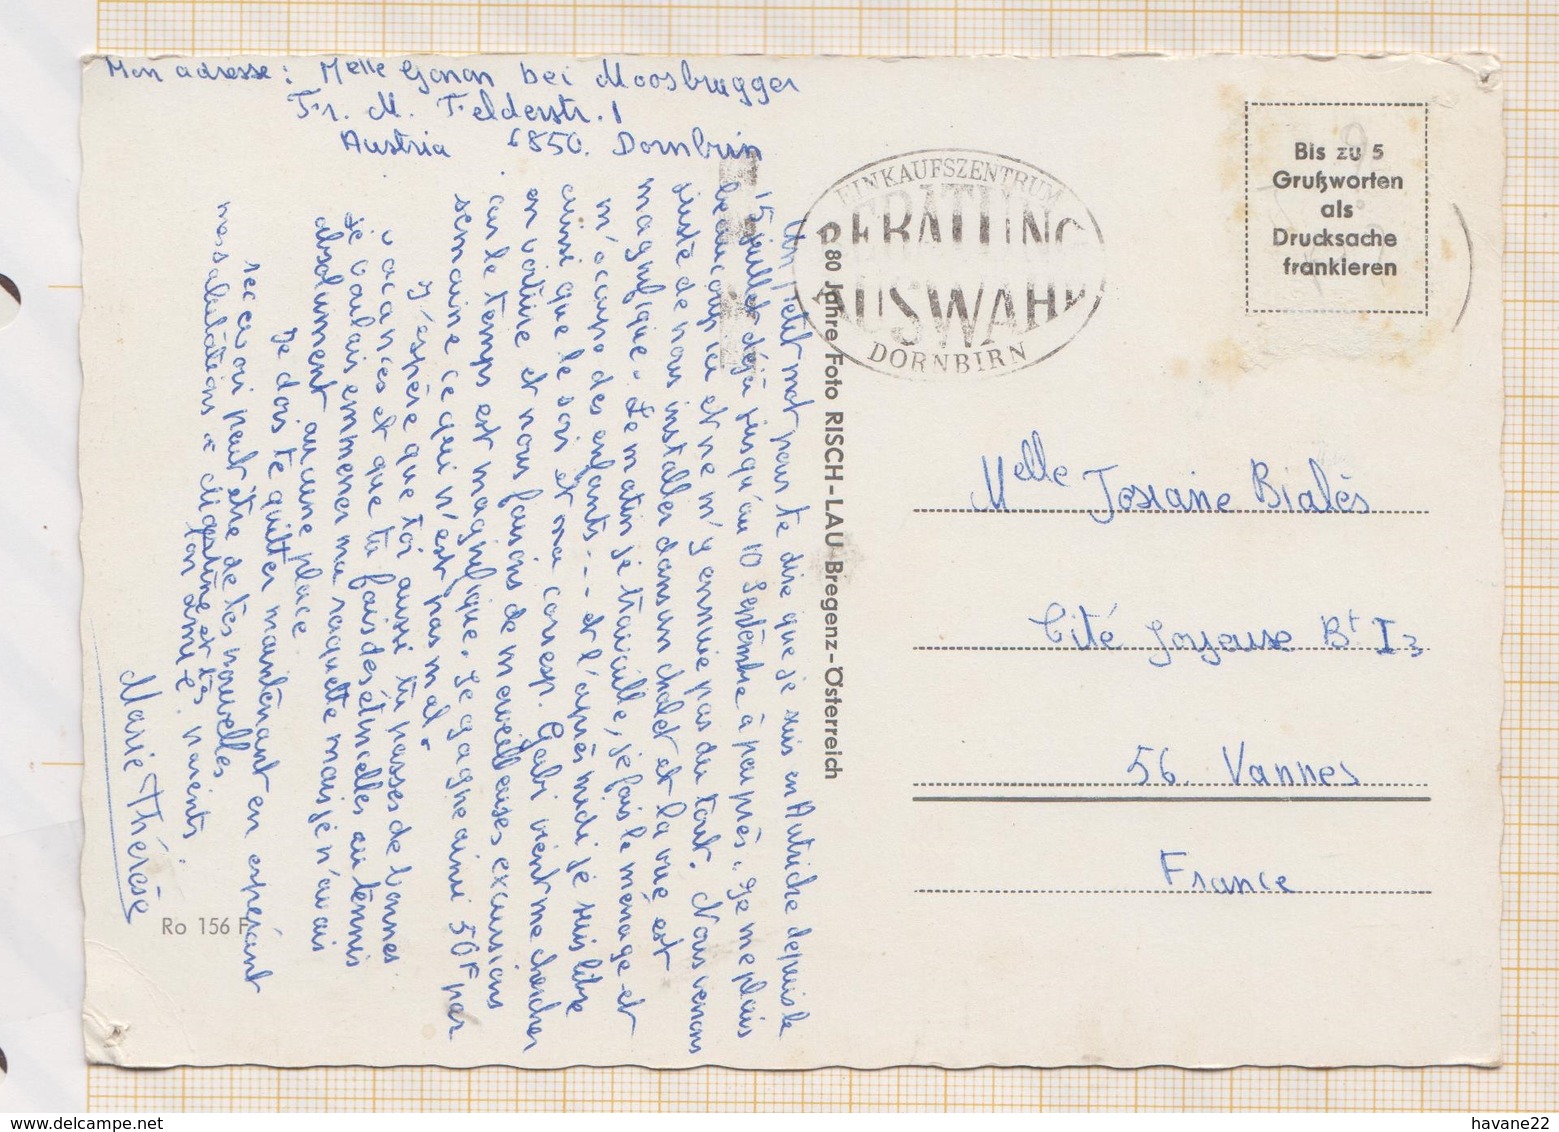 Mon adresse : Melle Gonon bei Moosbrugger
Fr. M. Felderstr. 1
Austria 6850. Dornbirn
Un petit mot pour te dire que je suis en Autriche depuis le
15 juillet et déjà jusqu'au 10 Septembre à peu près. Je me plais
beaucoup ici et ne m'y ennuie pas du tout. Nous venons
juste de nous installer dans un chalet et la vue est
magnifique. Le matin je travaille, je fais le ménage et
m'occupe des enfants... et l'après midi je suis libre
ainsi que le soir et ma corresp. Gabi vient me chercher
en voiture et nous faisons de merveilleuses excursions
car le temps est magnifique. Je gagne ainsi 50F par
semaine ce qui n'est pas mal.
J'espère que toi aussi tu passes de bonnes
vacances et que tu fais des étincelles au tennis
Je voulais emmener ma raquette mais je n'avais
absolument aucune place.
Je dois te quitter maintenant en espérant
recevoir peut être de tes nouvelles
mes salutations à et tes parents.
ton amie
Marie Thérèse
Ro 156 F
80 Jahre Foto RISCH-LAU-Bregenz-Österreich
EINKAUFSZENTRUM
BERATUNG
AUSWAHL
DORNBIRN
Bis zu 5
Grußworten
als
Drucksache
frankieren
Melle Josiane Bialès
Cité Joyeuse Bt I3
56. Vannes
France
havane22